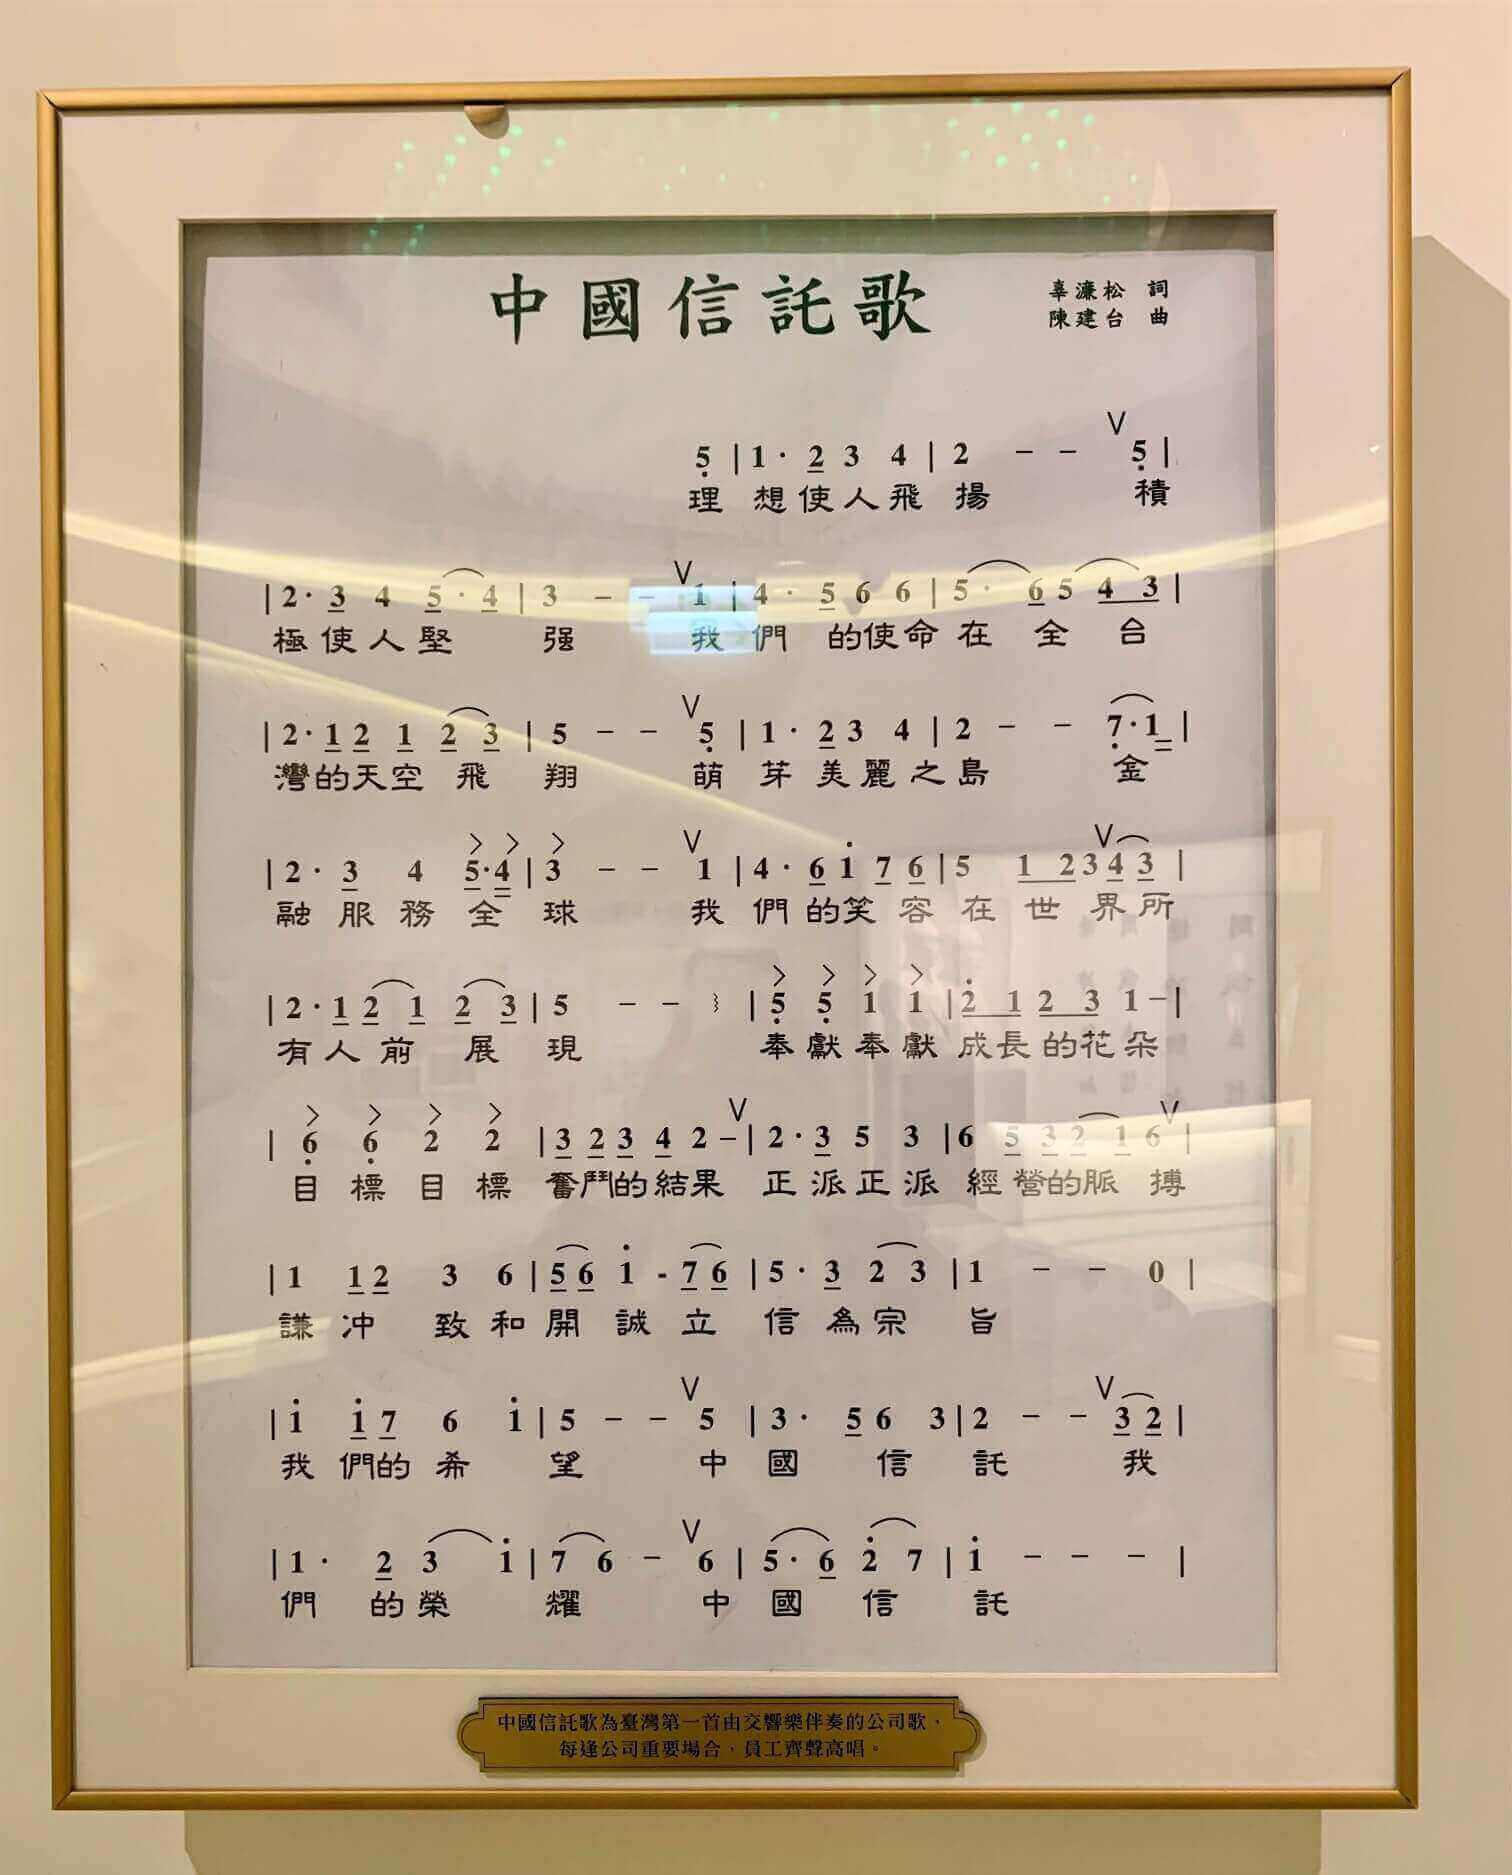 中國信託歌
辜濂松 詞
陳建台 曲
5̣ | 1· 2 3 4 | 2 － － V 5̣ |
理 想使人飛 揚 積
| 2· 3 4 5·4 | 3 － － V 1 | 4· 5 6 6 | 5· 6 5 4 3 |
極使人堅 强 我 們 的使命在 全 台
| 2· 1 2 1 2 3 | 5 － － V 5̣ | 1· 2 3 4 | 2 － － 7̣·1 |
灣的天空 飛 翔 萌 芽 美麗之島 金
| 2· 3 4 5·4 | 3 － － V 1 | 4· 6 1̇ 7 6 | 5 1 2 3 V 4 3 |
融 服 務 全 球 我 們的笑 容 在 世 界所
| 2· 1 2 1 2 3 | 5 － － | 5̣ 5̣ 1 1 | 2̇ 1 2 3 1 － |
有人前 展 現 奉獻奉獻 成長的花朵
| 6̣ 6̣ 2 2 | 3 2 3 4 2 － V | 2· 3 5 3 | 6 5 3 2 1 6 V |
目 標 目 標 奮鬥的結果 正派正派 經營的脈 搏
| 1 1 2 3 6 | 5 6 1̇ - 7 6 | 5· 3 2 3 | 1 － － 0 |
謙 冲 致和開 誠 立 信為宗 旨
| 1̇ 1̇ 7 6 1̇ | 5 － － V 5 | 3· 5 6 3 | 2 － － V 3 2 |
我 們的 希 望 中 國 信 託 我
| 1· 2 3 1̇ | 7 6 － V 6 | 5· 6 2̇ 7 | 1̇ － － － |
們 的榮 耀 中 國 信 託
中國信託歌為臺灣第一首由交響樂伴奏的公司歌，
每逢公司重要場合，員工齊聲高唱。